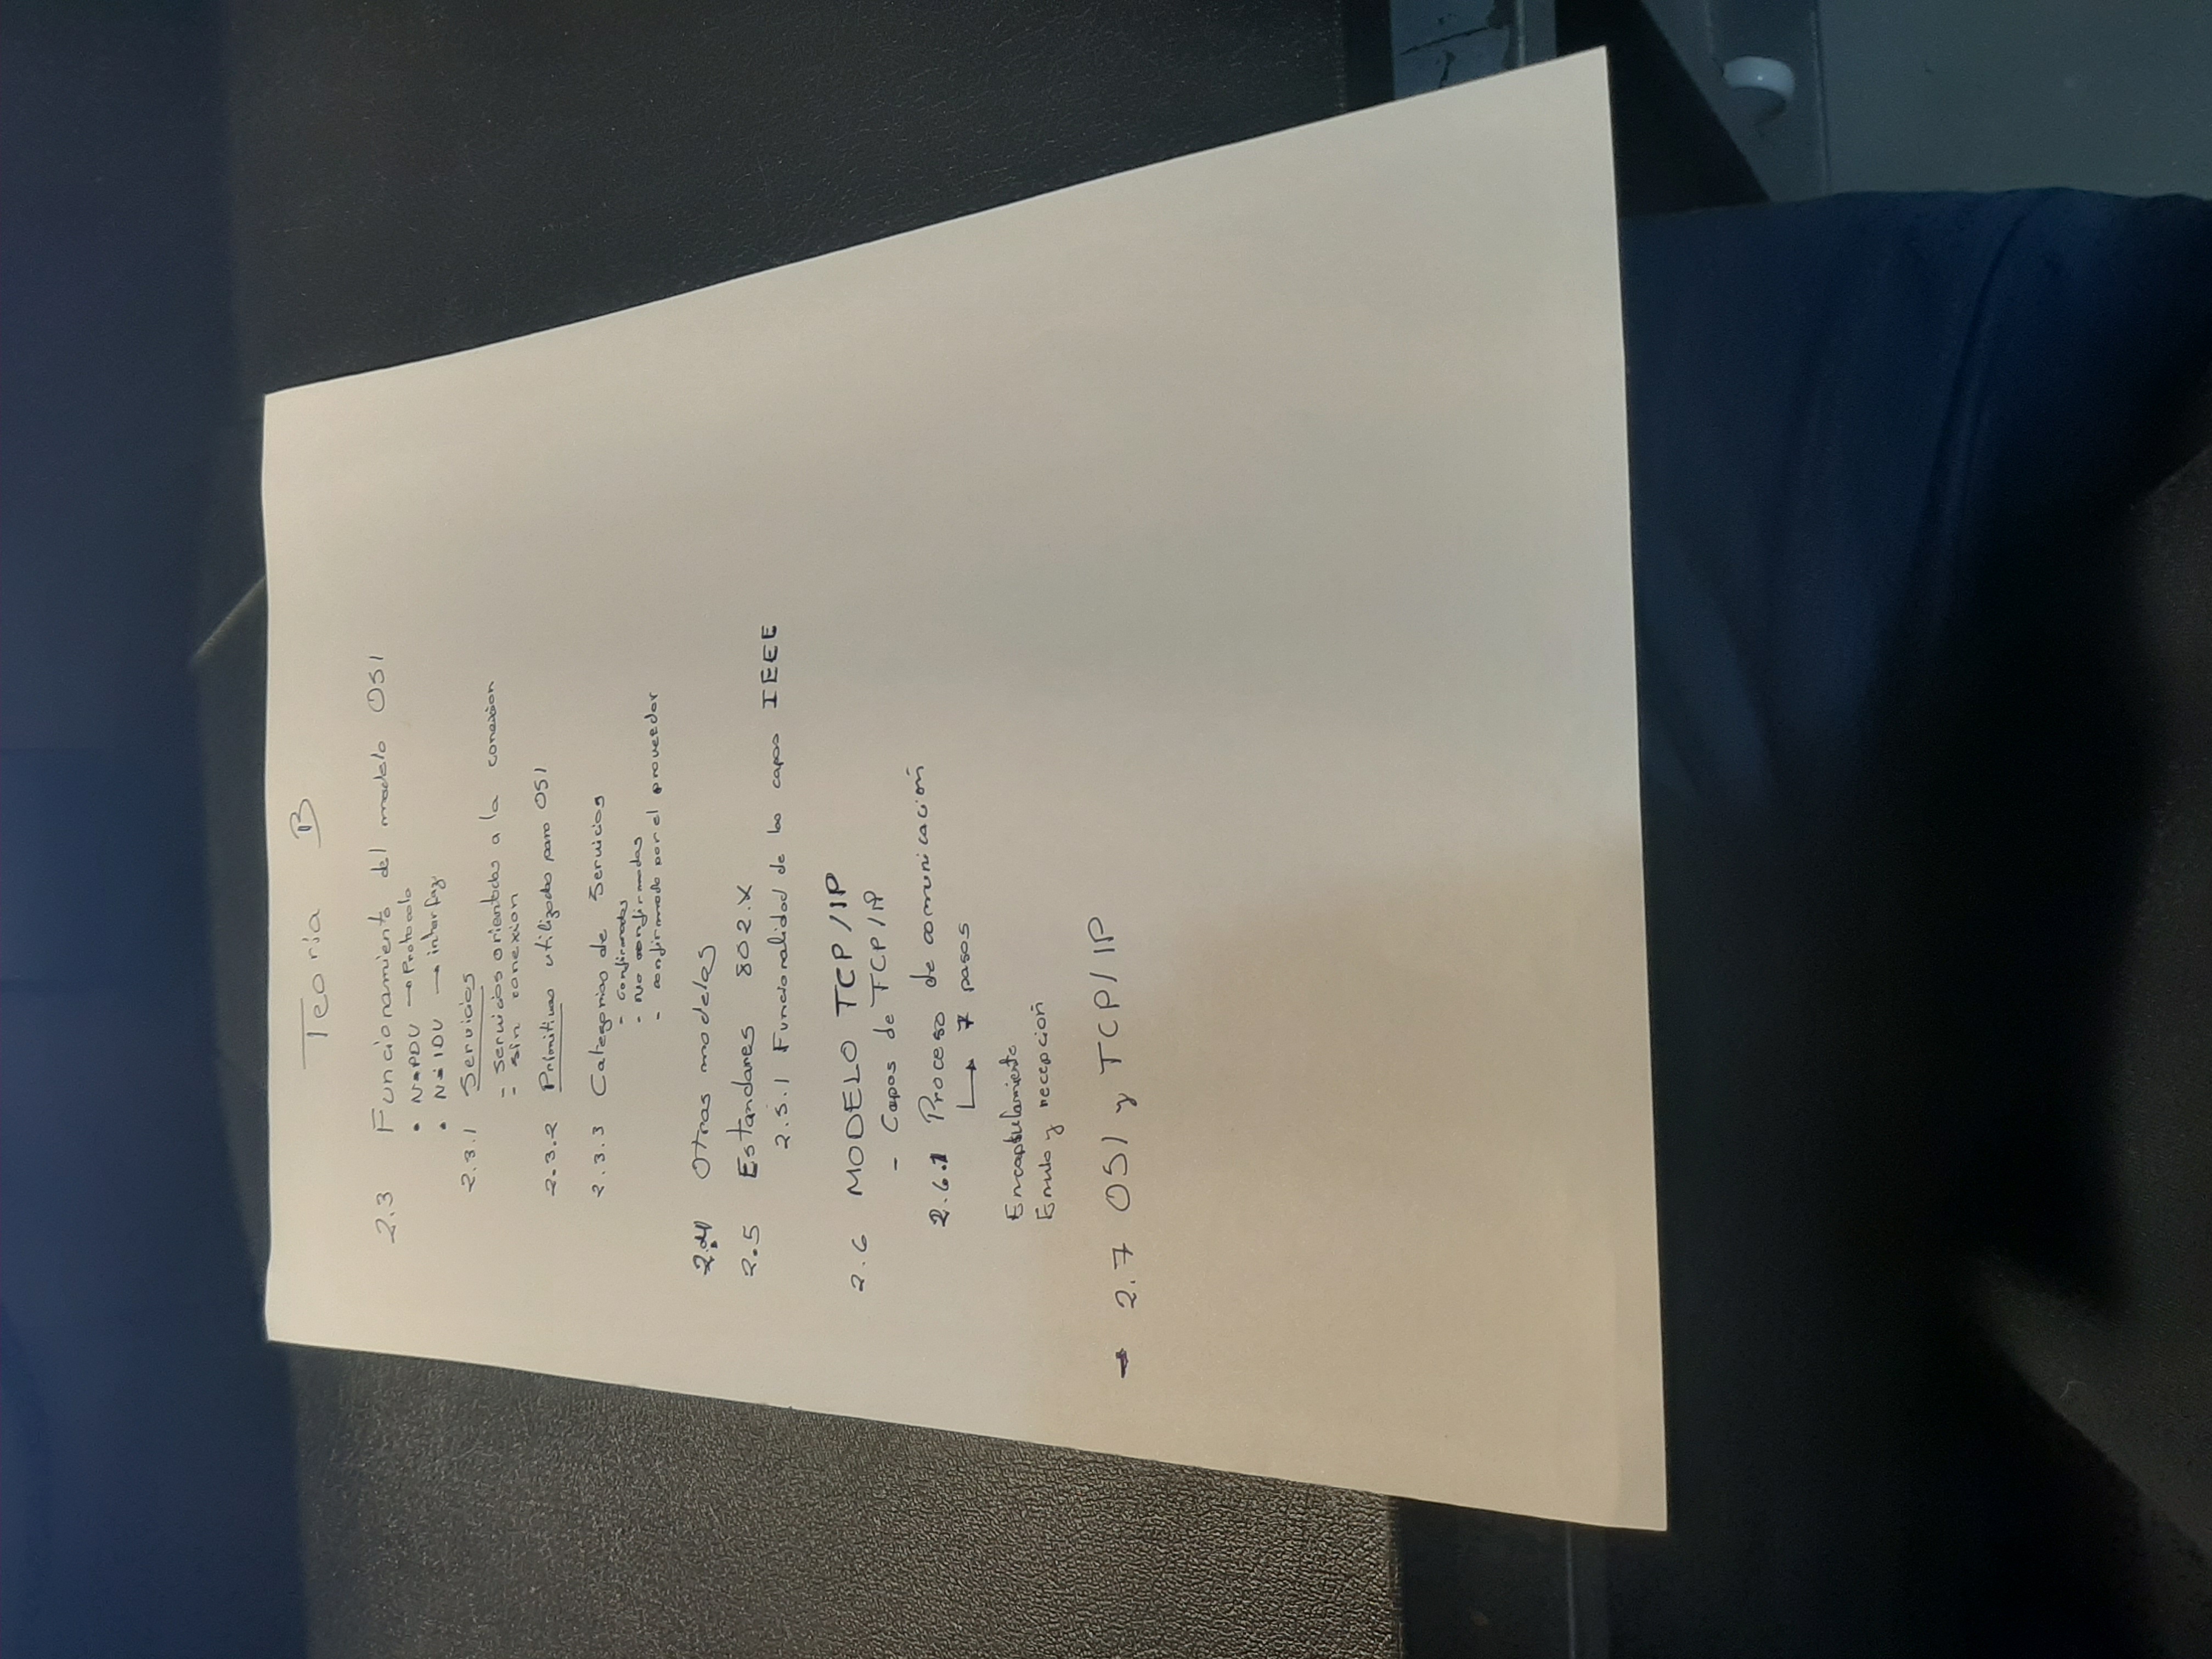 Teoria B
2.3 Funcionamiento del modelo OSI
• N-PDU → Protocolo
• N-IDU → interfaz
2.3.1 Servicios
- servicios orientados a la conexion
- sin conexion
2.3.2 Primitivas utilizadas para OSI
2.3.3 Categorias de Servicios
- confirmados
- No confirmados
- confirmado por el proveedor
2.4 Otros modelos
2.5 Estandares 802.X
2.5.1 Funcionalidad de las capas IEEE
2.6 MODELO TCP/IP
- Capas de TCP/IP
2.6.1 Proceso de comunicación
↳ 7 pasos
Encapsulamiento
Envio y recepción
- 2.7 OSI y TCP/IP